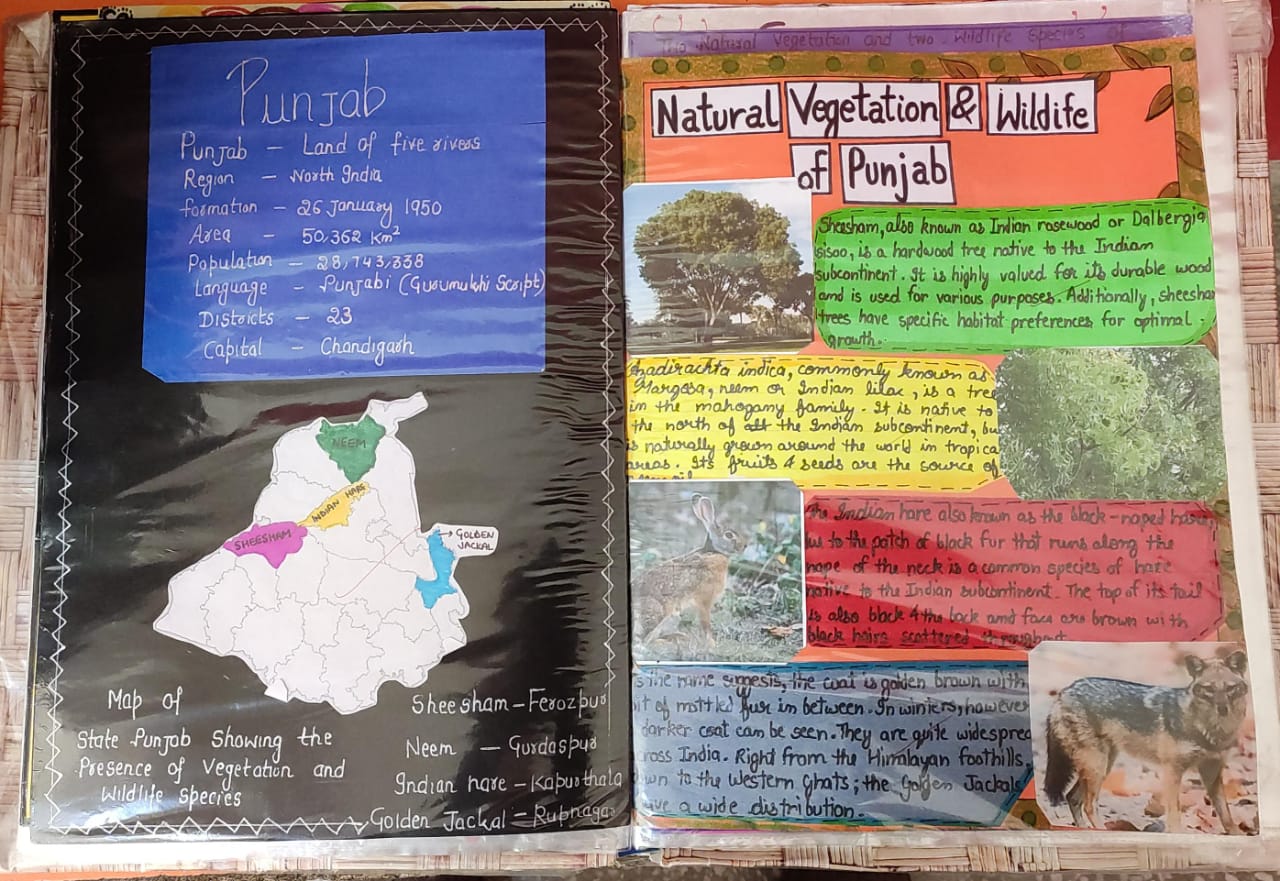 Punjab
Punjab – Land of five rivers
Region – North India
formation – 26 January 1950
Area – 50,362 Km²
Population – 28,743,338
Language – Punjabi (Gurumukhi Script)
Districts – 23
Capital – Chandigarh
NEEM
INDIAN HARE
SHEESHAM
GOLDEN
JACKAL
Map of
State Punjab Showing the
Presence of Vegetation and
Wildlife species
Sheesham – Ferozpur
Neem – Gurdaspur
Indian hare – Kapurthala
Golden Jackal – Rupnagar
The Natural Vegetation and two Wildlife species of
Natural Vegetation & Wildife
of Punjab
Sheesham, also known as Indian rosewood or Dalbergia
sisoo, is a hardwood tree native to the Indian
subcontinent. It is highly valued for its durable wood
and is used for various purposes. Additionally, sheesha
trees have specific habitat preferences for optimal
growth.
Azadirachta indica, commonly known as
Margosa, neem or Indian lilac, is a tree
in the mahogany family. It is native to
the north of the Indian subcontinent, bu
is naturally grown around the world in tropica
areas. Its fruits & seeds are the source of
the Indian hare also known as the black-naped hare,
due to the patch of black fur that runs along the
nape of the neck is a common species of hare
native to the Indian subcontinent. The top of its tail
is also black & the back and face are brown with
black hairs scattered throughout
s the name suggests, the coat is golden brown with
bit of mottled fur in between. In winters, however
darker coat can be seen. They are quite widespread
cross India. Right from the Himalayan foothills,
own to the Western Ghats; the Golden Jackals
ave a wide distribution.